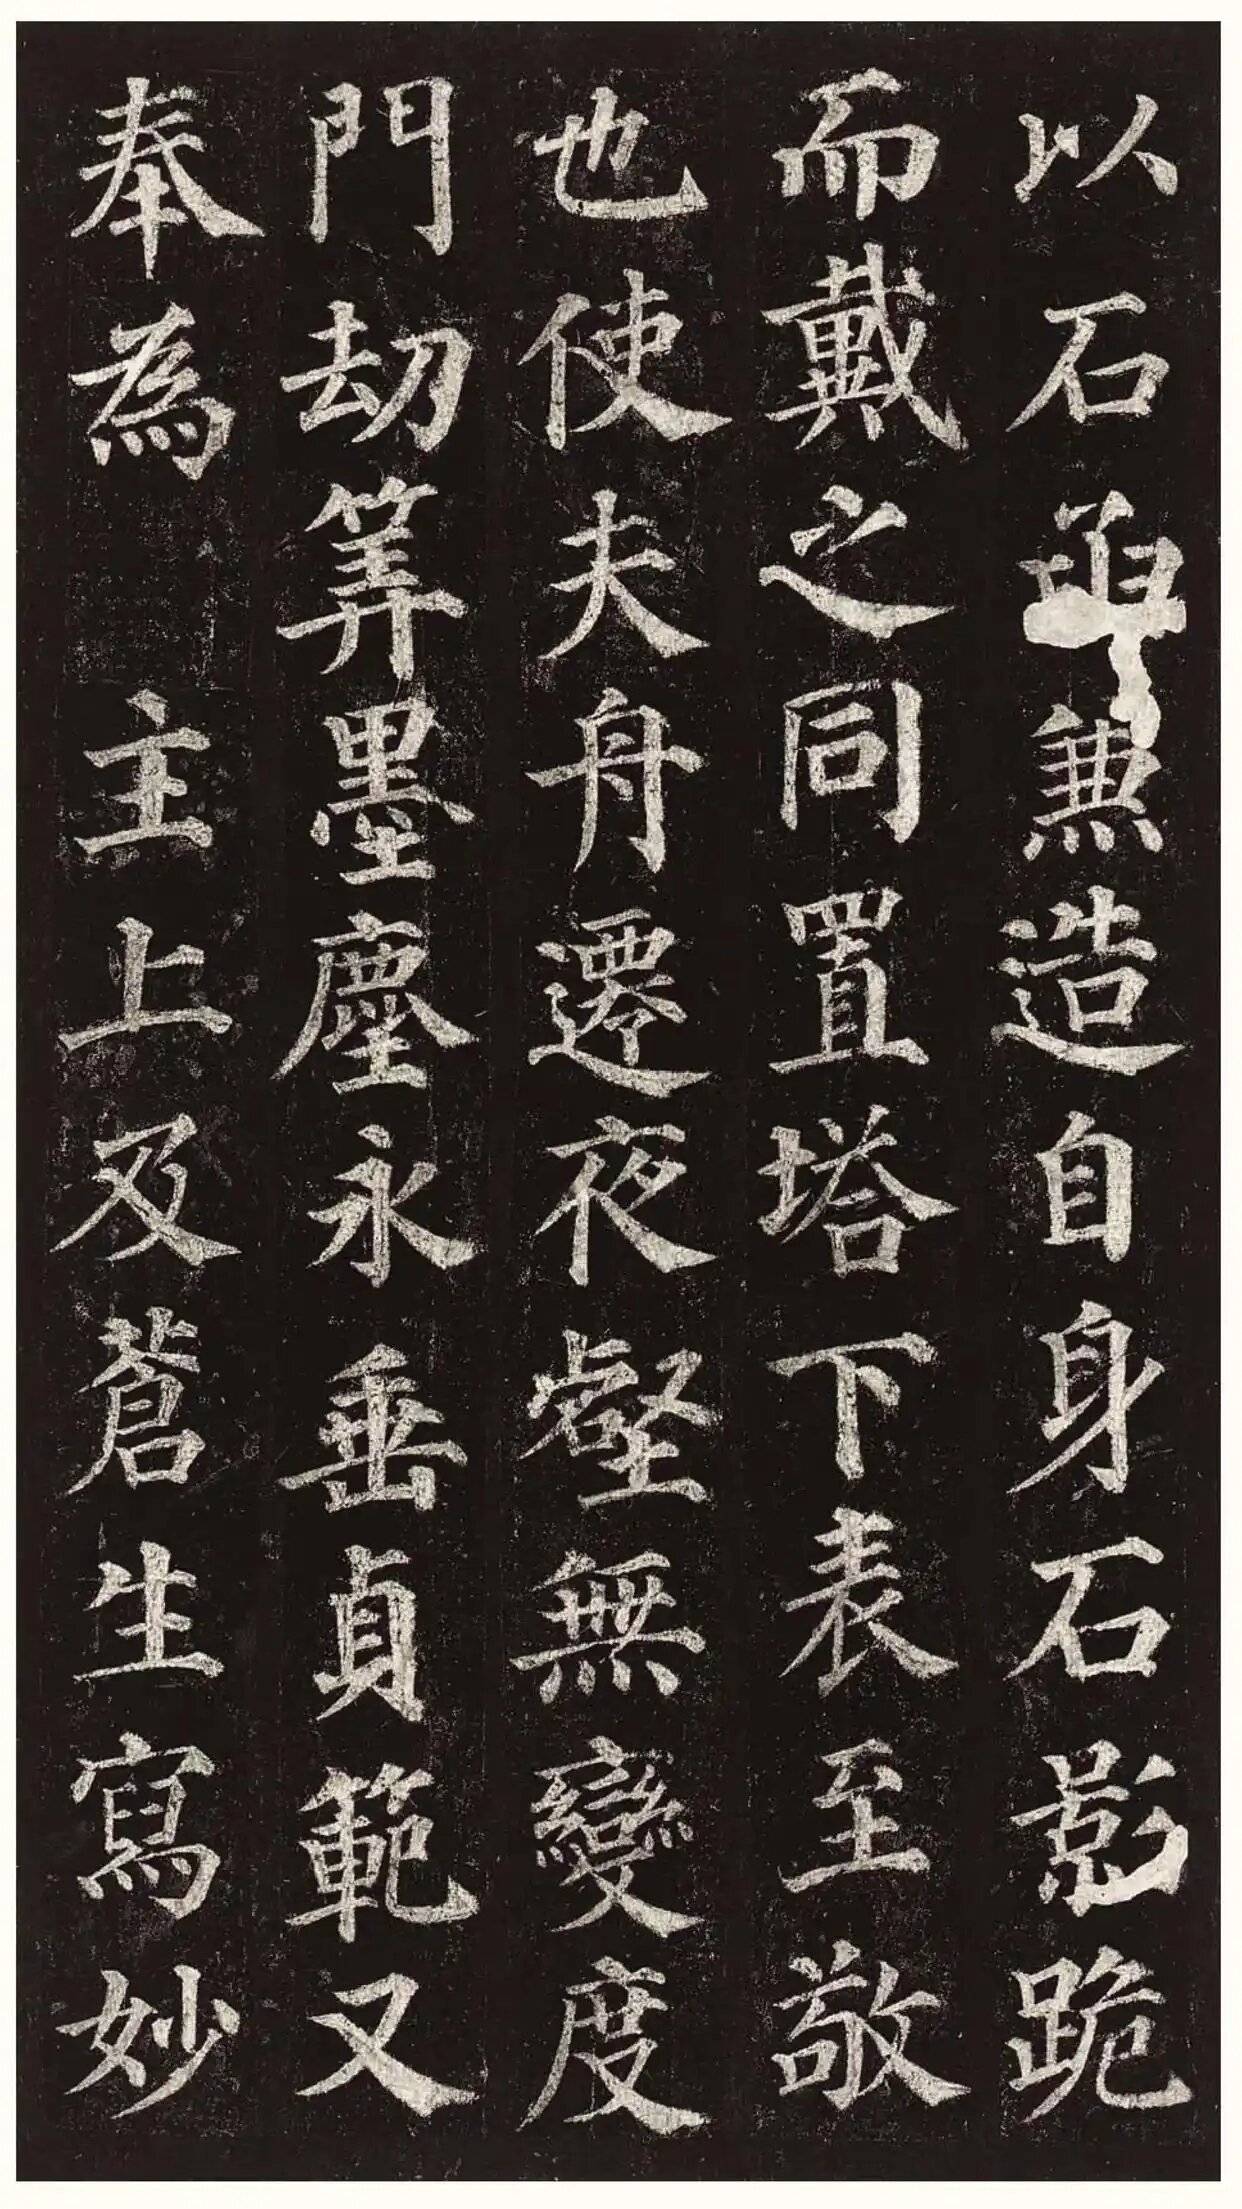 以石函兼造自身石影跪
而戴之同置塔下表至敬
也使夫舟遷夜壑無變度
門刼筭墨塵永垂貞範又
奉為主上及蒼生寫妙